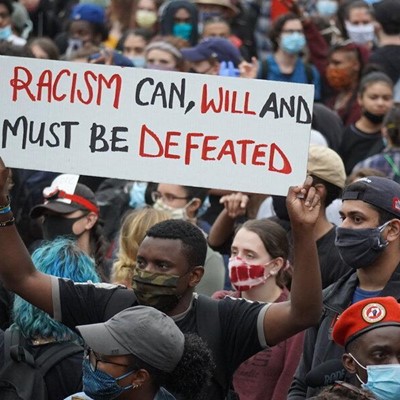 RACISM CAN, WILL AND
MUST BE DEFEATED